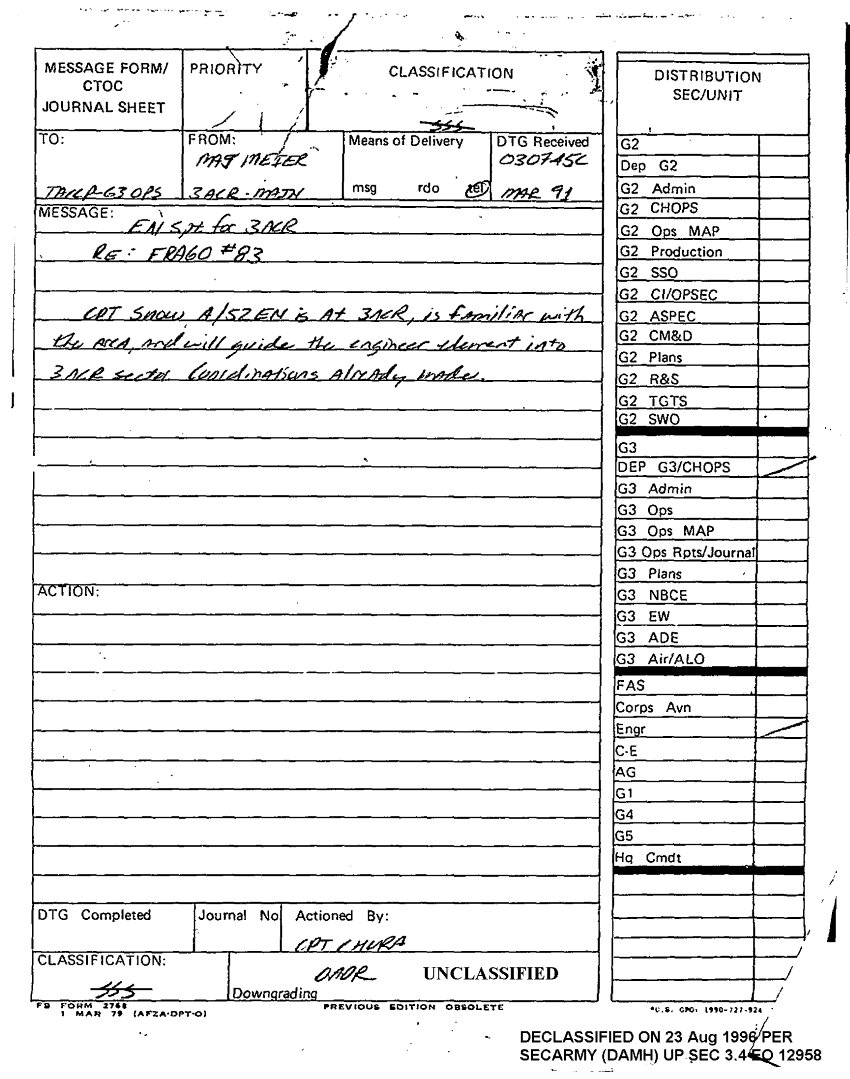 MESSAGE FORM/
CTOC
JOURNAL SHEET
PRIORITY
CLASSIFICATION
TO:
TACCP-G3 OPS
FROM:
MAJ METER
3ACR-MAIN
Means of Delivery
msg rdo tel
DTG Received
030745C
MAR 91
MESSAGE:
EN Spt for 3ACR
RE: FRAGO #83
CPT Snow A/52EN is At 3ACR, is familiar with
the area, and will guide the engineer element into
3ACR sector Coordinations Already made.
ACTION:
DTG Completed
Journal No
Actioned By:
CPT CHURA
CLASSIFICATION:
OADR
UNCLASSIFIED
Downgrading
FB FORM 2768
1 MAR 79 (AFZA-DPT-O)
PREVIOUS EDITION OBSOLETE
DISTRIBUTION
SEC/UNIT
G2
Dep G2
G2 Admin
G2 CHOPS
G2 Ops MAP
G2 Production
G2 SSO
G2 CI/OPSEC
G2 ASPEC
G2 CM&D
G2 Plans
G2 R&S
G2 TGTS
G2 SWO
G3
DEP G3/CHOPS
G3 Admin
G3 Ops
G3 Ops MAP
G3 Ops Rpts/Journal
G3 Plans
G3 NBCE
G3 EW
G3 ADE
G3 Air/ALO
FAS
Corps Avn
Engr
C-E
AG
G1
G4
G5
Hq Cmdt
*U.S. GPO: 1990-727-924
DECLASSIFIED ON 23 Aug 1996 PER
SECARMY (DAMH) UP SEC 3.4 EO 12958